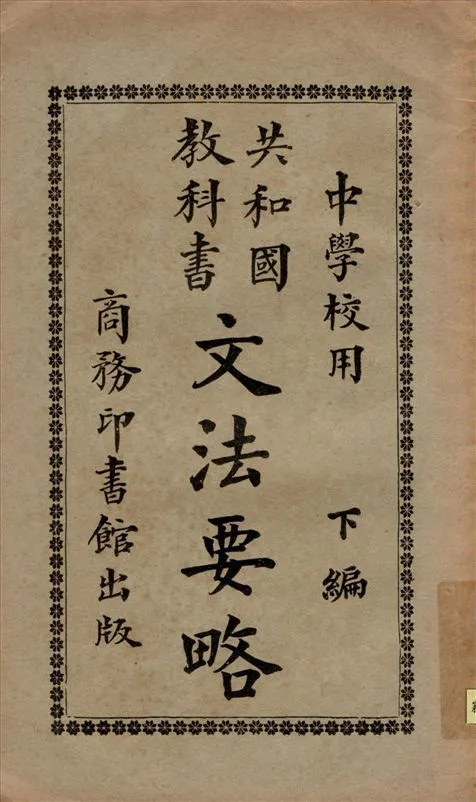 中學校用 下編
共和國
教科書
文法要略
商務印書館出版